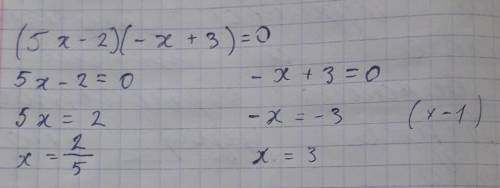 (5x-2)(-x+3)=0
5x-2=0 -x+3=0
5x=2 -x=-3 (x-1)
x=2/5 x=3